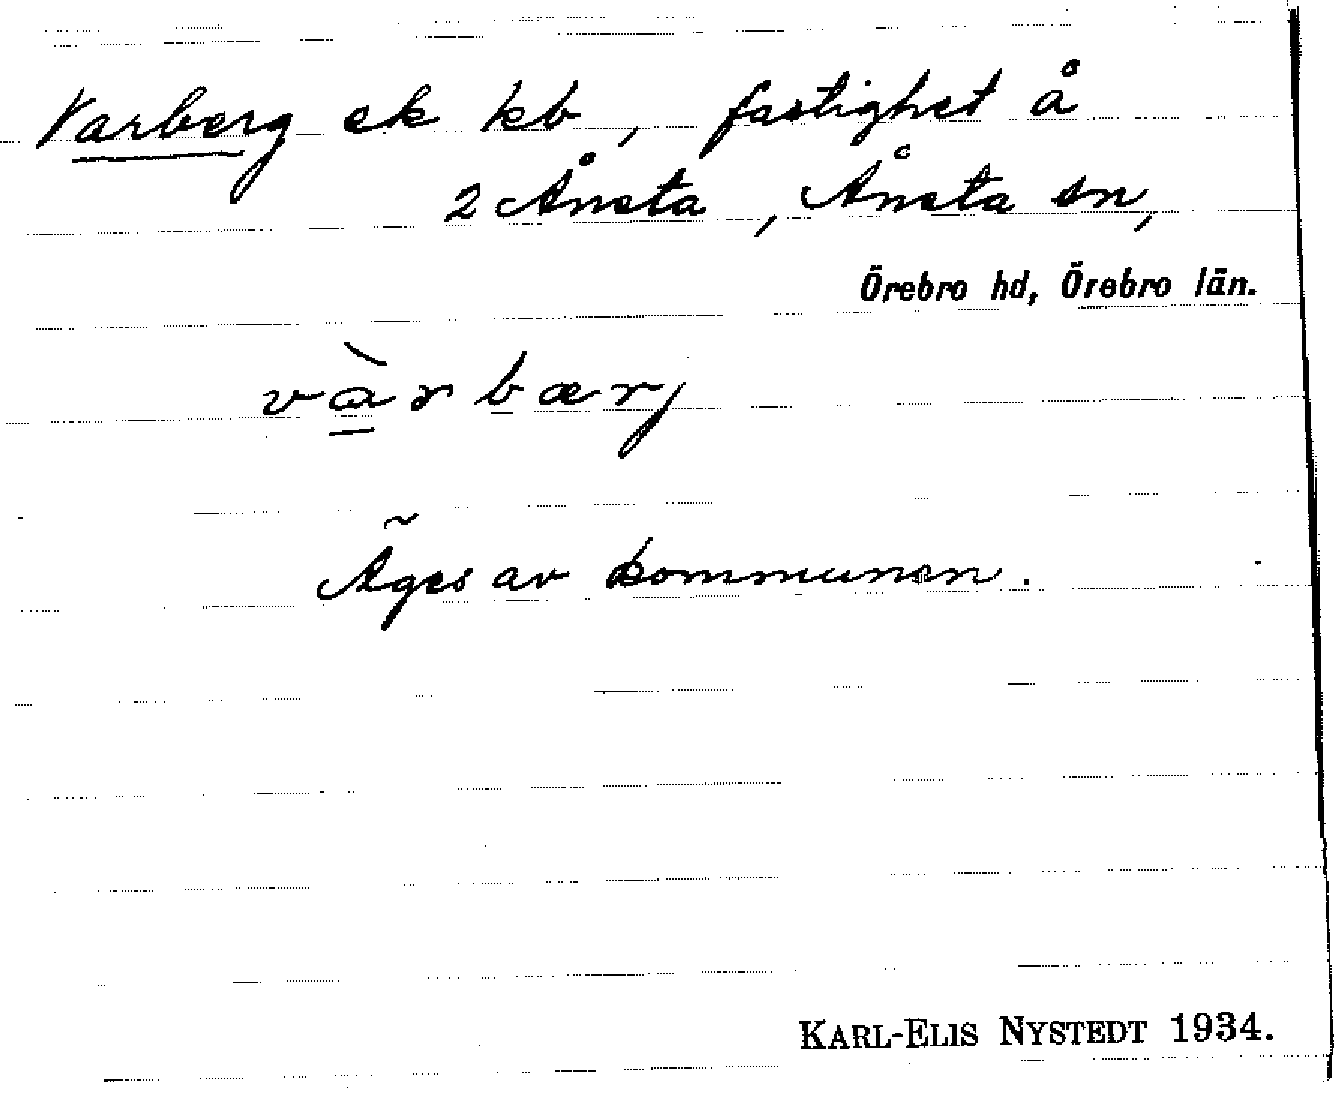 Varberg ek kb, fastighet å
2 Ånsta, Ånsta sn,
Örebro hd, Örebro län.
vàrbærj
Äges av kommunen.
KARL-ELIS NYSTEDT 1934.